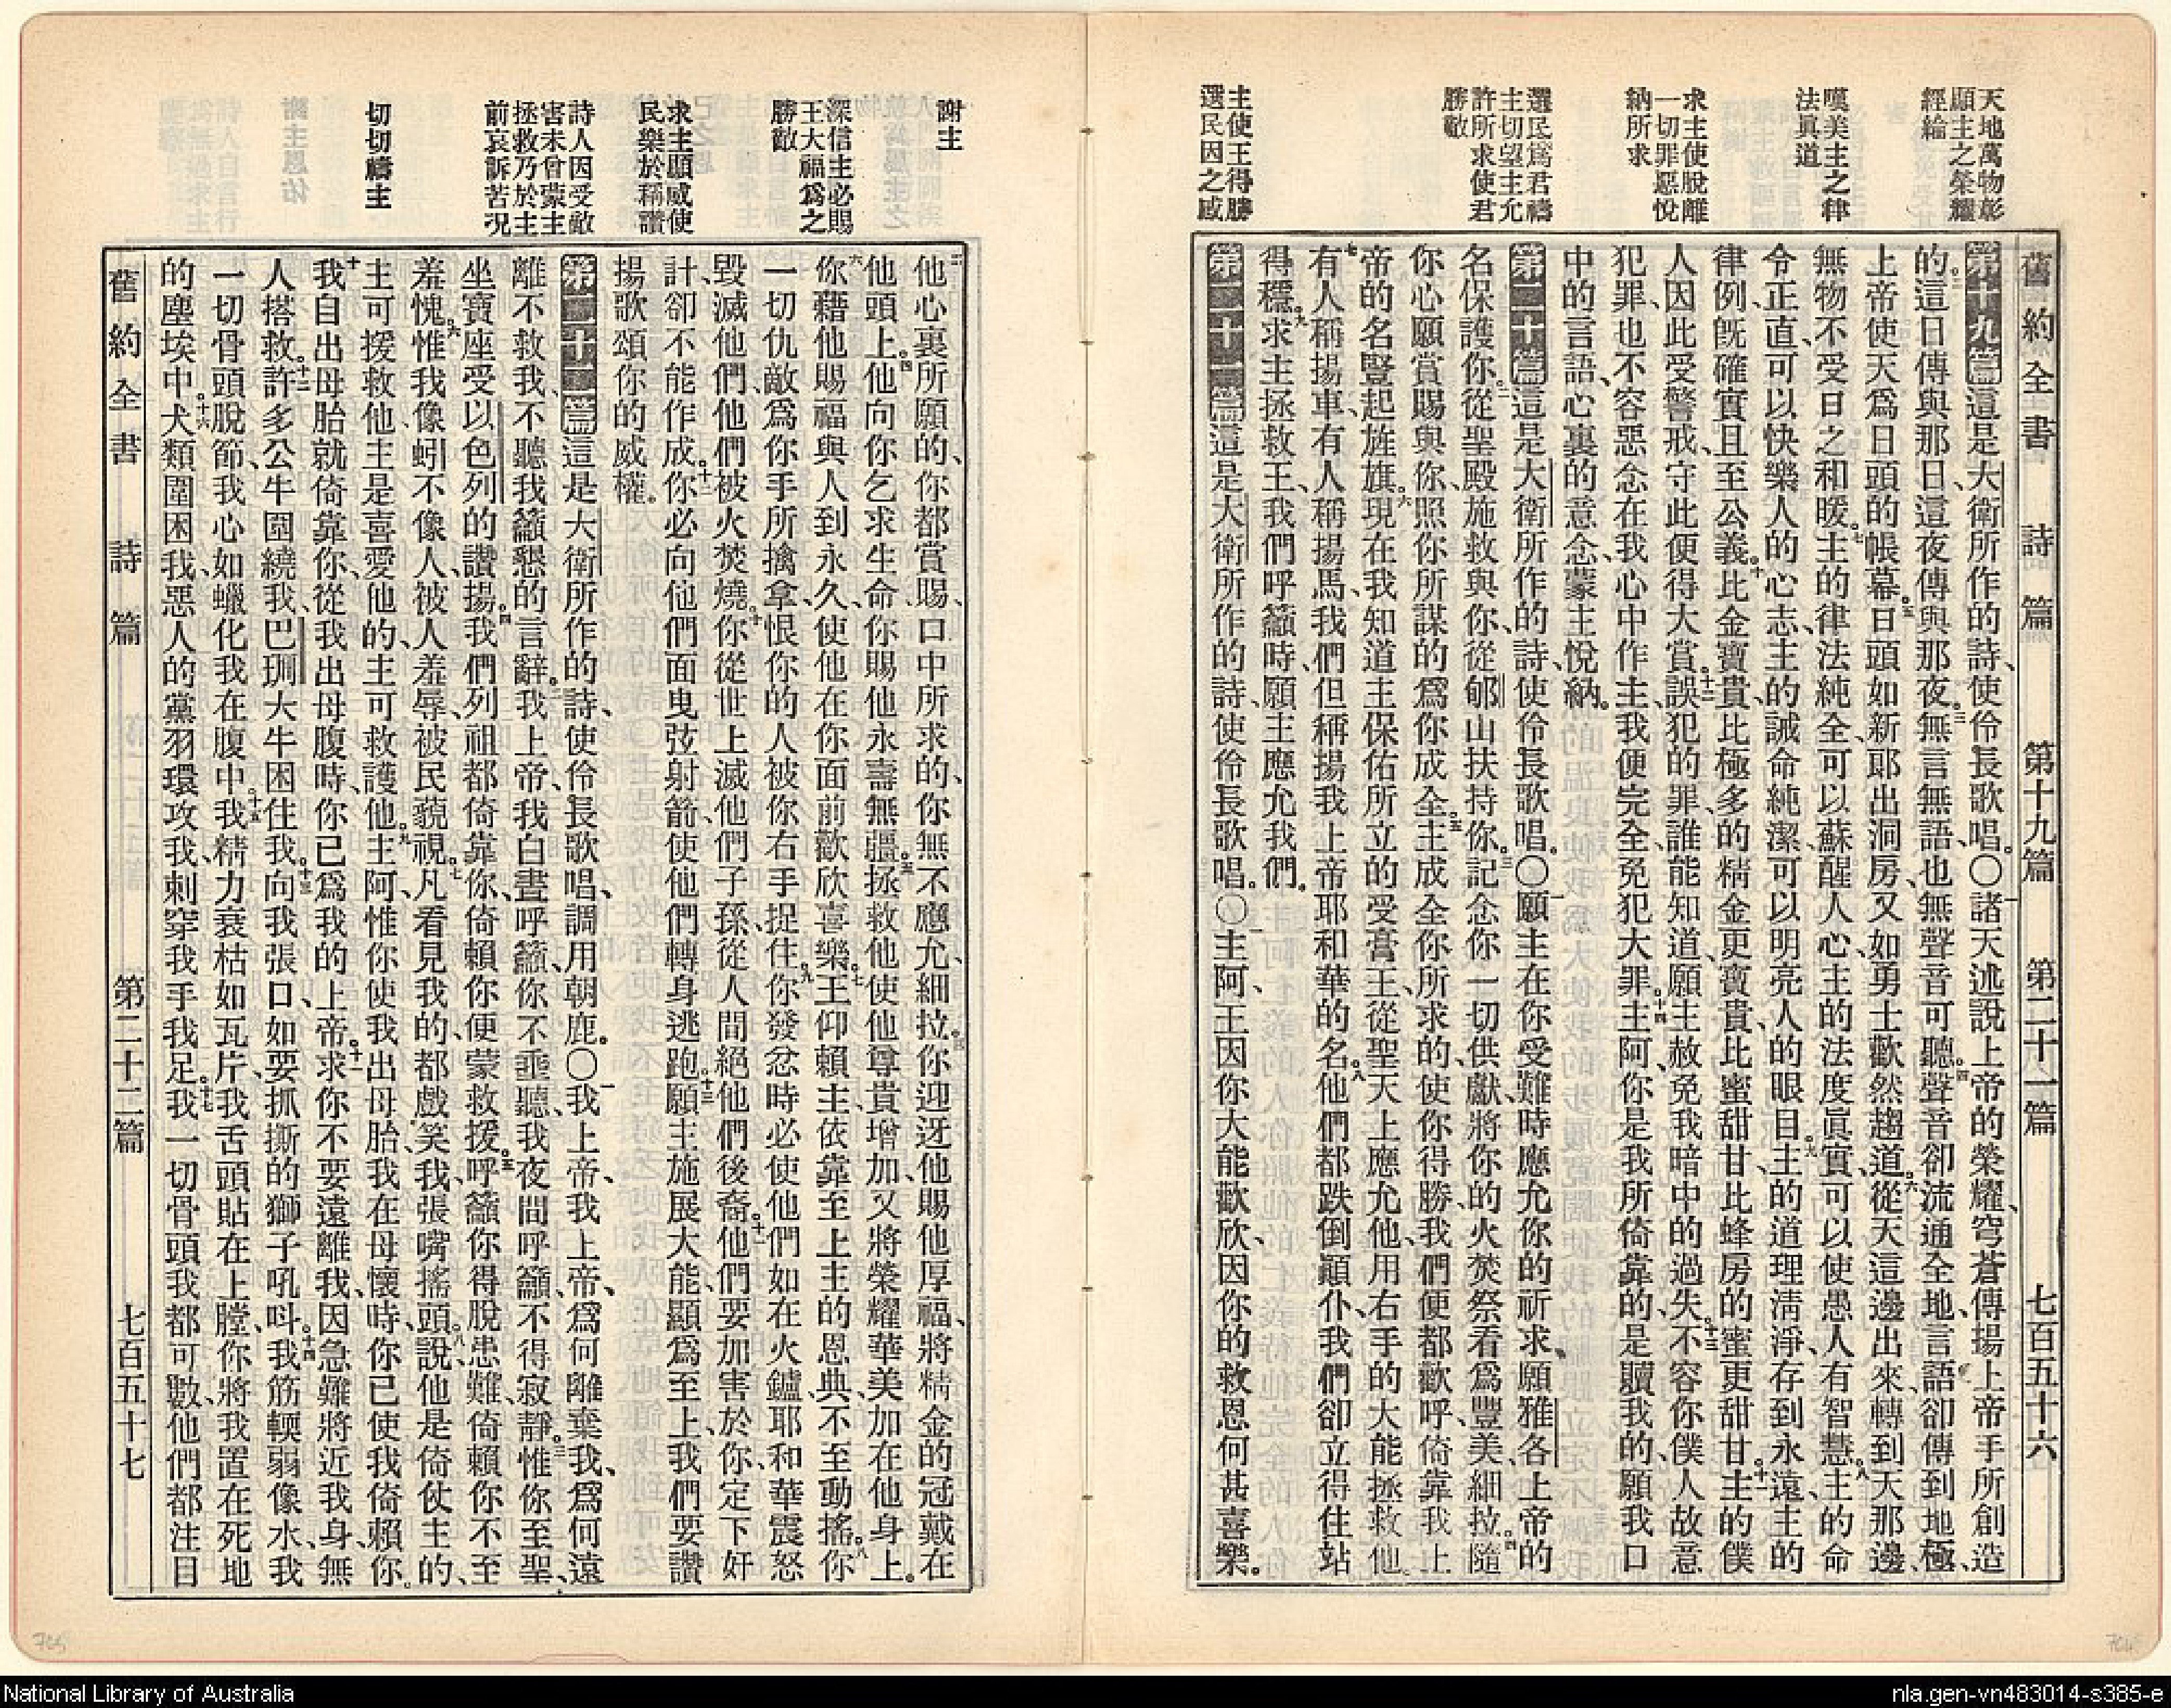 天地萬物彰
顯主之榮耀
經綸
嘆美主之律
法眞道
求主使脫離
一切罪惡悅
納所求
選民爲君禱
主切望主允
許所求使君
勝敵
主使王得勝
選民因之感
舊約全書 詩篇 第十九篇 第二十一篇 七百五十六
第十九篇這是大衛所作的詩、使伶長歌唱。〇一諸天述說上帝的榮耀、穹蒼傳揚上帝手所創造
的。二這日傳與那日、這夜傳與那夜。三無言無語、也無聲音可聽。四聲音卻流通全地、言語卻傳到地極、
上帝使天爲日頭的帳幕。五日頭如新郞出洞房、又如勇士歡然趨道。六從天這邊出來、轉到天那邊、
無物不受日之和暖。七主的律法純全、可以蘇醒人心、主的法度眞實、可以使愚人有智慧。八主的命
令正直、可以快樂人的心志、主的誡命純潔、可以明亮人的眼目。九主的道理淸淨、存到永遠、主的
律例旣確實且至公義。十比金寶貴、比極多的精金更寶貴、比蜜甜甘、比蜂房的蜜更甜甘。十一主的僕
人因此受警戒、守此便得大賞。十二誤犯的罪、誰能知道、願主赦免我暗中的過失。十三不容你僕人故意
犯罪、也不容惡念在我心中作主、我便完全、免犯大罪。十四主阿、你是我所倚靠的、是贖我的、願我口
中的言語、心裏的意念、蒙主悅納。
第二十篇這是大衛所作的詩、使伶長歌唱。〇一願主在你受難時應允你的祈求、願雅各上帝的
名保護你。二從聖殿施救與你、從郇山扶持你。三記念你一切供獻、將你的火焚祭看爲豐美、細拉。四隨
你心願賞賜與你、照你所謀的爲你成全。五主成全你所求的、使你得勝、我們便都歡呼、倚靠我上
帝的名豎起旌旗。六現在我知道主保佑所立的受膏王、從聖天上應允他、用右手的大能拯救他。
七有人稱揚車、有人稱揚馬、我們但稱揚我上帝耶和華的名。八他們都跌倒顚仆、我們卻立得住站
得穩。九求主拯救王、我們呼籲時、願主應允我們。
第二十一篇這是大衛所作的詩、使伶長歌唱。〇一主阿、王因你大能歡欣、因你的救恩何甚喜樂。
謝主
深信主必賜
王大福爲之
勝敵
求主顯威使
民樂於稱讚
詩人因受敵
害未曾蒙主
拯救乃於主
前哀訴苦況
切切禱主
二他心裏所願的、你都賞賜、口中所求的、你無不應允、細拉。三你迎迓他、賜他厚福、將精金的冠戴在
他頭上。四他向你乞求生命、你賜他永壽無疆。五拯救他使他尊貴增加、又將榮耀華美加在他身上。
六你藉他賜福與人到永久、使他在你面前歡欣喜樂。七王仰賴主、依靠至上主的恩典、不至動搖。八你
一切仇敵爲你手所擒拿、恨你的人被你右手捉住。九你發忿時必使他們如在火鑪、耶和華震怒
毀滅他們、他們被火焚燒。十你從世上滅他們子孫、從人間絕他們後裔。十一他們要加害於你、定下奸
計、卻不能作成。十二你必向他們面曳弦射箭、使他們轉身逃跑。十三願主施展大能、顯爲至上、我們要讚
揚歌頌你的威權。
第二十二篇這是大衛所作的詩、使伶長歌唱、調用朝鹿。〇一我上帝、我上帝、爲何離棄我、爲何遠
離不救我、不聽我籲懇的言辭。二我上帝、我白晝呼籲、你不垂聽、我夜間呼籲、不得寂靜。三惟你至聖、
坐寶座受以色列的讚揚。四我們列祖都倚靠你、倚賴你便蒙救援。五呼籲你得脫患難、倚賴你不至
羞愧。六惟我像蚓不像人、被人羞辱、被民藐視。七凡看見我的、都戲笑我、張嘴搖頭說。八他是倚仗主的、
主可援救他、主是喜愛他的、主可救護他。九主阿、惟你使我出母胎、我在母懷時、你已使我倚賴你。
十我自出母胎就倚靠你、從我出母腹時、你已爲我的上帝。十一求你不要遠離我、因急難將近我身、無
人搭救。十二許多公牛圍繞我、巴珊大牛困住我。十三向我張口、如要抓撕的獅子吼叫。十四我筋輭弱像水、我
一切骨頭脫節、我心如蠟化、我在腹中。十五我精力衰枯、如瓦片、我舌頭貼在上膛、你將我置在死地
的塵埃中。十六犬類圍困我、惡人的黨羽環攻我、刺穿我手我足。十七我一切骨頭我都可數、他們都注目
舊約全書 詩篇 第二十二篇 七百五十七
National Library of Australia
nla.gen-vn483014-s385-e